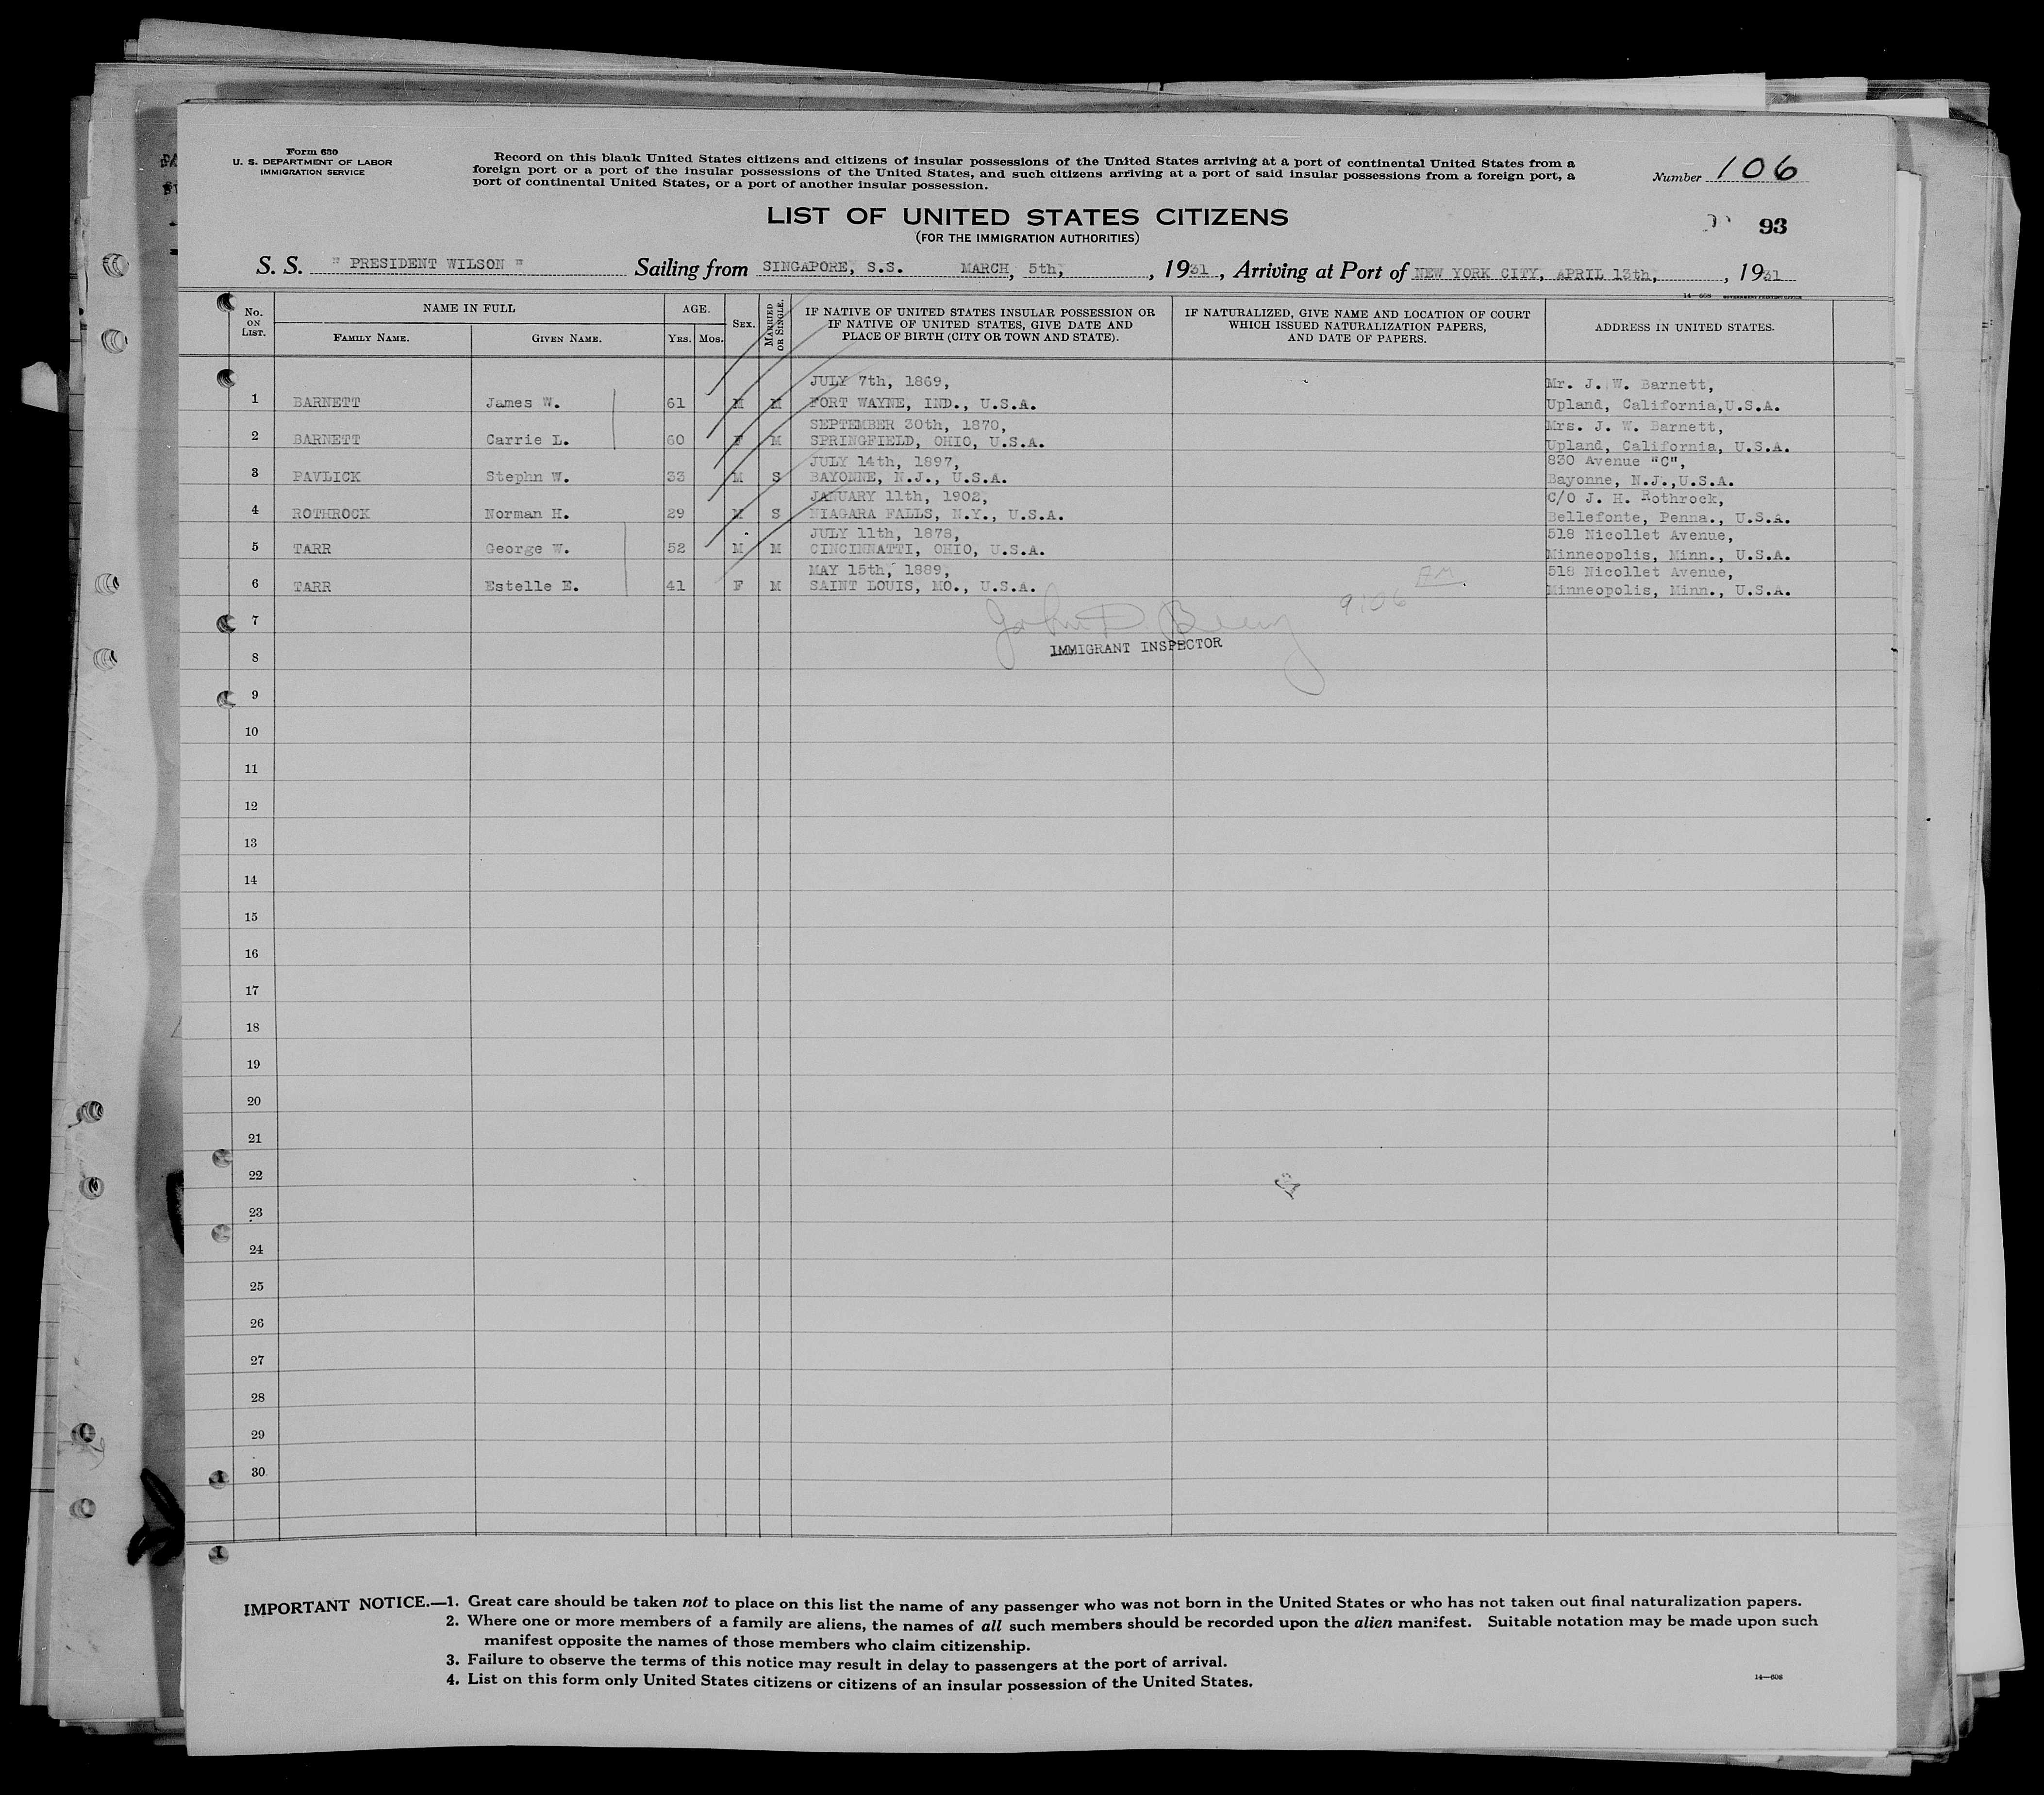 Form 630
U. S. DEPARTMENT OF LABOR
IMMIGRATION SERVICE
Record on this blank United States citizens and citizens of insular possessions of the United States arriving at a port of continental United States from a
foreign port or a port of the insular possessions of the United States, and such citizens arriving at a port of said insular possessions from a foreign port, a
port of continental United States, or a port of another insular possession.
Number 106
LIST OF UNITED STATES CITIZENS
(FOR THE IMMIGRATION AUTHORITIES)
93
S. S. " PRESIDENT WILSON " Sailing from SINGAPORE, S.S. MARCH, 5th, , 1931 , Arriving at Port of NEW YORK CITY, APRIL 13th, , 1931
14—608 GOVERNMENT PRINTING OFFICE
No. ON LIST.
NAME IN FULL
FAMILY NAME.
GIVEN NAME.
AGE.
YRS. MOS.
SEX.
MARRIED OR SINGLE.
IF NATIVE OF UNITED STATES INSULAR POSSESSION OR
IF NATIVE OF UNITED STATES, GIVE DATE AND
PLACE OF BIRTH (CITY OR TOWN AND STATE).
IF NATURALIZED, GIVE NAME AND LOCATION OF COURT
WHICH ISSUED NATURALIZATION PAPERS,
AND DATE OF PAPERS.
ADDRESS IN UNITED STATES.
JULY 7th, 1869, Mr. J. W. Barnett,
1 BARNETT James W. 61 M M FORT WAYNE, IND., U.S.A. Upland, California,U.S.A.
SEPTEMBER 30th, 1870, Mrs. J. W. Barnett,
2 BARNETT Carrie L. 60 F M SPRINGFIELD, OHIO, U.S.A. Upland, California, U.S.A.
JULY 14th, 1897, 830 Avenue "C",
3 PAVLICK Stephn W. 33 M S BAYONNE, N.J., U.S.A. Bayonne, N.J.,U.S.A.
JANUARY 11th, 1902, C/O J. H. Rothrock,
4 ROTHROCK Norman H. 29 M S NIAGARA FALLS, N.Y., U.S.A. Bellefonte, Penna., U.S.A.
JULY 11th, 1878, 518 Nicollet Avenue,
5 TARR George W. 52 M M CINCINNATTI, OHIO, U.S.A. Minneopolis, Minn., U.S.A.
MAY 15th, 1889, 518 Nicollet Avenue,
6 TARR Estelle E. 41 F M SAINT LOUIS, MO., U.S.A. Minneopolis, Minn., U.S.A.
7
John D.
IMMIGRANT INSPECTOR
8
9
10
11
12
13
14
15
16
17
18
19
20
21
22
23
24
25
26
27
28
29
30
IMPORTANT NOTICE.—1. Great care should be taken not to place on this list the name of any passenger who was not born in the United States or who has not taken out final naturalization papers.
2. Where one or more members of a family are aliens, the names of all such members should be recorded upon the alien manifest. Suitable notation may be made upon such
manifest opposite the names of those members who claim citizenship.
3. Failure to observe the terms of this notice may result in delay to passengers at the port of arrival.
4. List on this form only United States citizens or citizens of an insular possession of the United States.
14—608